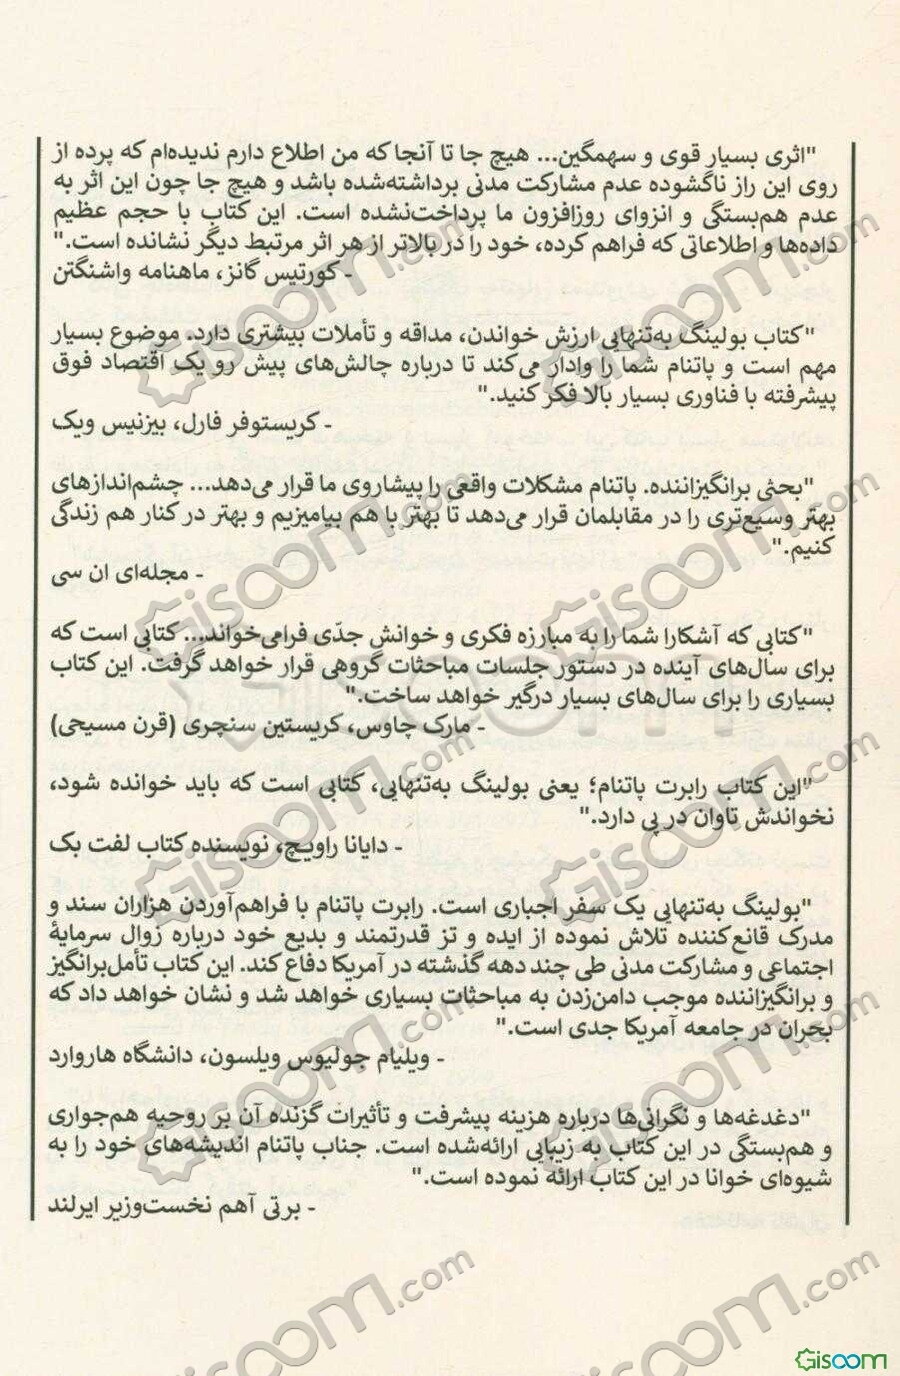 "اثری بسیار قوی و سهمگین... هیچ جا تا آنجا که من اطلاع دارم ندیده‌ام که پرده از
روی این راز ناگشوده عدم مشارکت مدنی برداشته‌شده باشد و هیچ جا چون این اثر به
عدم هم‌بستگی و انزوای روزافزون ما پرداخت‌نشده است. این کتاب با حجم عظیم
داده‌ها و اطلاعاتی که فراهم کرده، خود را در بالاتر از هر اثر مرتبط دیگر نشانده است."
- کورتیس گانز، ماهنامه واشنگتن
"کتاب بولینگ به‌تنهایی ارزش خواندن، مداقه و تأملات بیشتری دارد. موضوع بسیار
مهم است و پاتنام شما را وادار می‌کند تا درباره چالش‌های پیش رو یک اقتصاد فوق
پیشرفته با فناوری بسیار بالا فکر کنید."
- کریستوفر فارل، بیزنیس ویک
"بحثی برانگیزاننده. پاتنام مشکلات واقعی را پیشاروی ما قرار می‌دهد... چشم‌اندازهای
بهتر وسیع‌تری را در مقابلمان قرار می‌دهد تا بهتر با هم بیامیزیم و بهتر در کنار هم زندگی
کنیم."
- مجله‌ای ان سی
"کتابی که آشکارا شما را به مبارزه فکری و خوانش جدّی فرامی‌خواند... کتابی است که
برای سال‌های آینده در دستور جلسات مباحثات گروهی قرار خواهد گرفت. این کتاب
بسیاری را برای سال‌های بسیار درگیر خواهد ساخت."
- مارک چاوس، کریستین سنچری (قرن مسیحی)
"این کتاب رابرت پاتنام؛ یعنی بولینگ به‌تنهایی، کتابی است که باید خوانده شود،
نخواندش تاوان در پی دارد."
- دایانا راویچ، نویسنده کتاب لفت بک
"بولینگ به‌تنهایی یک سفر اجباری است. رابرت پاتنام با فراهم‌آوردن هزاران سند و
مدرک قانع‌کننده تلاش نموده از ایده و تز قدرتمند و بدیع خود درباره زوال سرمایهٔ
اجتماعی و مشارکت مدنی طی چند دهه گذشته در آمریکا دفاع کند. این کتاب تأمل‌برانگیز
و برانگیزاننده موجب دامن‌زدن به مباحثات بسیاری خواهد شد و نشان خواهد داد که
بحران در جامعه آمریکا جدی است."
- ویلیام جولیوس ویلسون، دانشگاه هاروارد
"دغدغه‌ها و نگرانی‌ها درباره هزینه پیشرفت و تأثیرات گزنده آن بر روحیه هم‌جواری
و هم‌بستگی در این کتاب به زیبایی ارائه‌شده است. جناب پاتنام اندیشه‌های خود را به
شیوه‌ای خوانا در این کتاب ارائه نموده است."
- برتی آهم نخست‌وزیر ایرلند
Gisoom.com
Gisoom